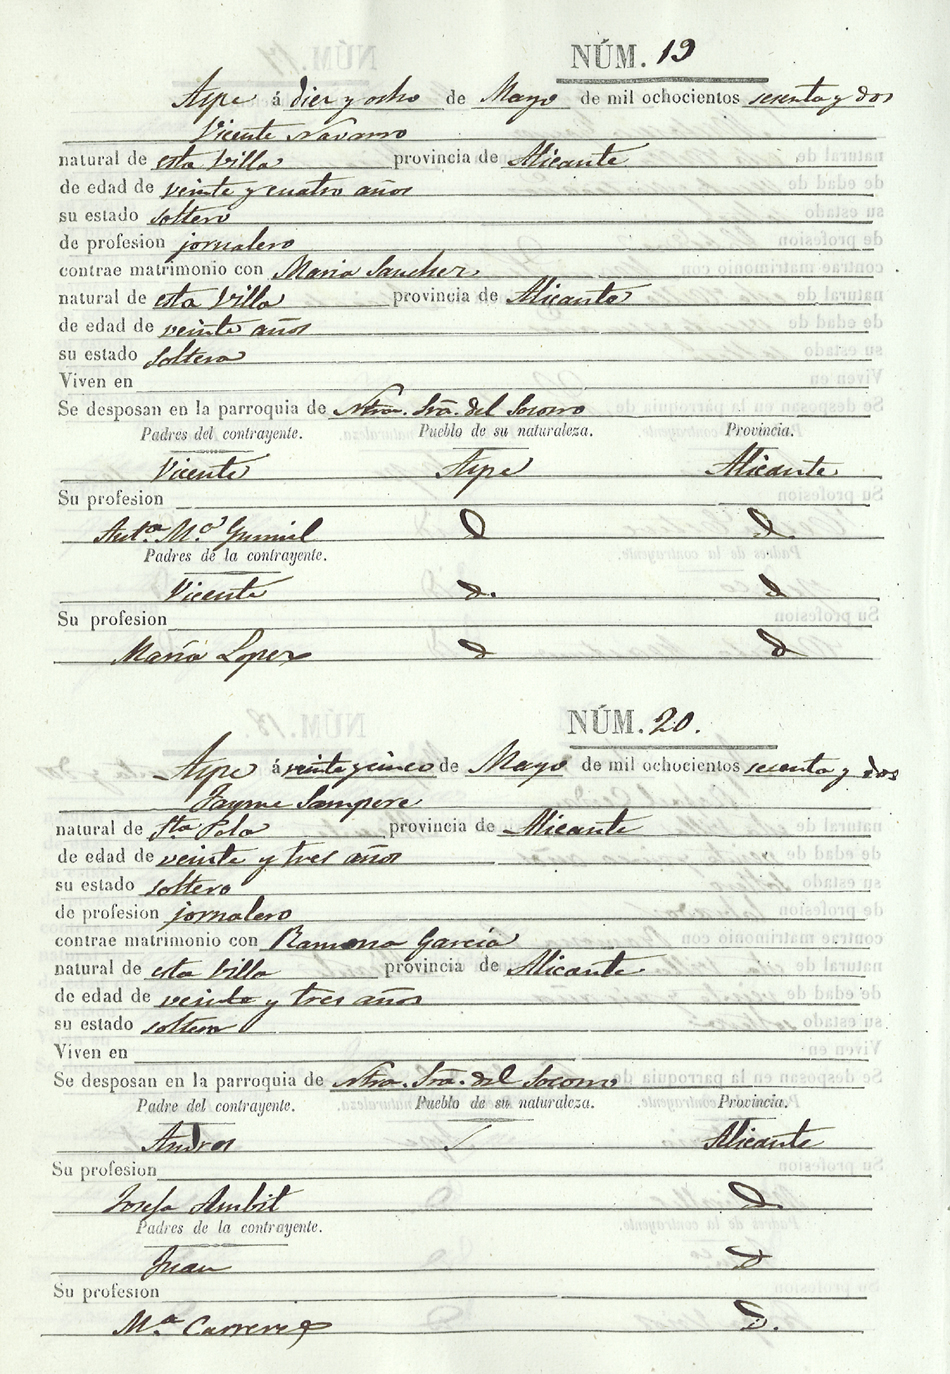 NÚM. 19
Aspe á diez y ocho de Mayo de mil ochocientos sesenta y dos
Vicente Navarro
natural de esta Villa provincia de Alicante
de edad de veinte y cuatro años
su estado soltero
de profesion jornalero
contrae matrimonio con Maria Sanchez
natural de esta Villa provincia de Alicante
de edad de veinte años
su estado soltera
Viven en
Se desposan en la parroquia de Ntra. Sra. del Socorro
Padres del contrayente. Pueblo de su naturaleza. Provincia.
Vicente Aspe Alicante
Su profesion
Anta. Ma. D D.
Padres de la contrayente.
Vicente d. d
Su profesion
María Lopez d d
NÚM. 20.
Aspe á veinte y cinco de Mayo de mil ochocientos sesenta y dos
Jayme Sampere
natural de Sta Pola provincia de Alicante
de edad de veinte y tres años
su estado soltero
de profesion jornalero
contrae matrimonio con Ramona García
natural de esta Villa provincia de Alicante
de edad de veinte y tres años
su estado soltera
Viven en
Se desposan en la parroquia de Ntra. Sra. del Socorro
Padre del contrayente. Pueblo de su naturaleza. Provincia.
Andres Alicante
Su profesion
Josefa D.
Padres de la contrayente.
Juan d
Su profesion
Ma. Carreres D.